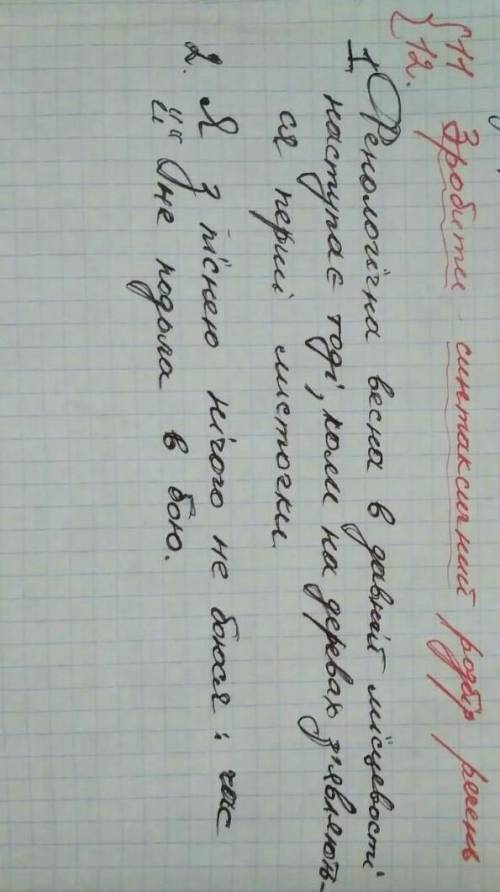 {11
12. Зробити синтаксичний розбір речень
1. Фенологічна весна в давній місцевості
наступає тоді, коли на деревах з'являють-
ся перші листочки.
2. Я з піснею нічого не боюся: час
її не подола в бою.